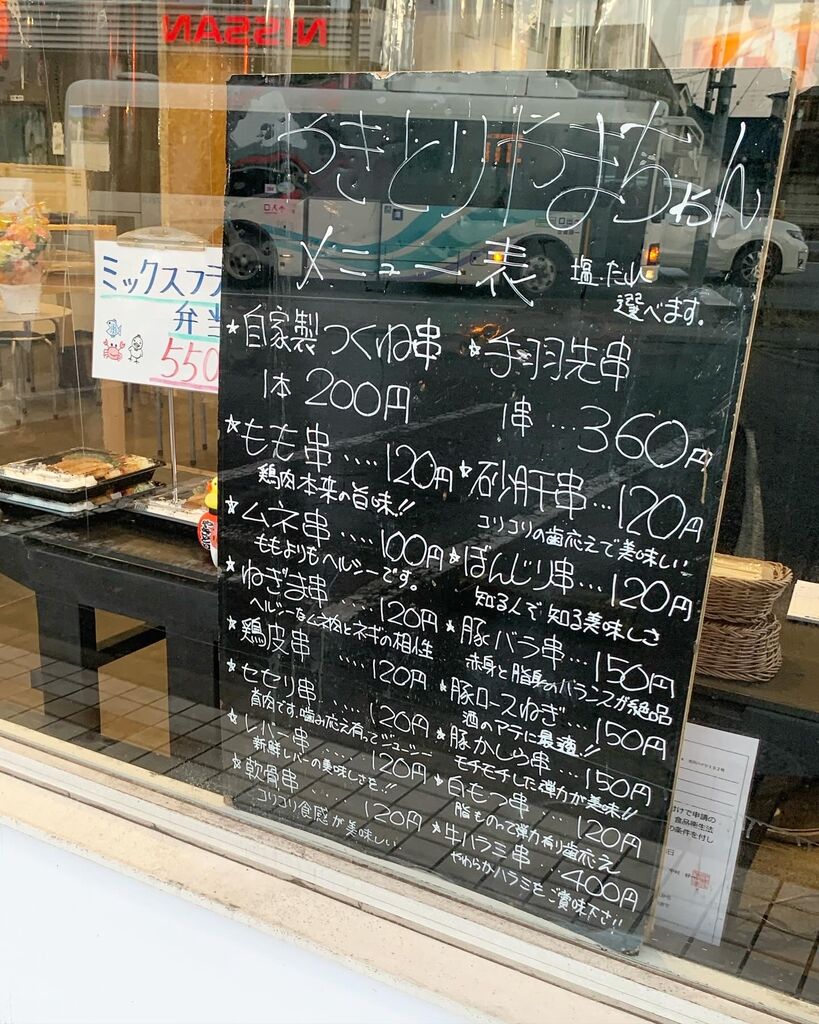 NISSAN
やきとりやまちゃん
メニュー表
塩.たれ
選べます。
ミックスフラ
弁当
550
★自家製つくね串
1本 200円
★もも串....120円
鶏肉本来の旨味!!
★ムネ串....100円
ももよりもヘルシーです。
★ねぎま串....120円
ヘルシーなムネ肉とネギの相性
★鶏皮串....120円
★セセリ串....120円
首肉です。噛み応え有ってジューシー
★レバー串....120円
新鮮レバーの美味しさを!!
★軟骨串....120円
コリコリ食感が美味しい
★手羽先串
1串...360円
★砂肝串...120円
コリコリの歯応えで美味しい
★ぼんじり串...120円
知る人ぞ知る美味しさ
★豚バラ串...150円
赤身と脂身のバランスが絶品
★豚ロースねぎ...150円
酒のアテに最適!!
★豚かしら串...150円
モチモチした弾力が美味!!
★白もつ串...120円
脂ものって弾力有り歯応え
★牛ハラミ串...400円
やわらかハラミをご賞味下さい
けで申請の
食品衛生法
の条件を付し
日